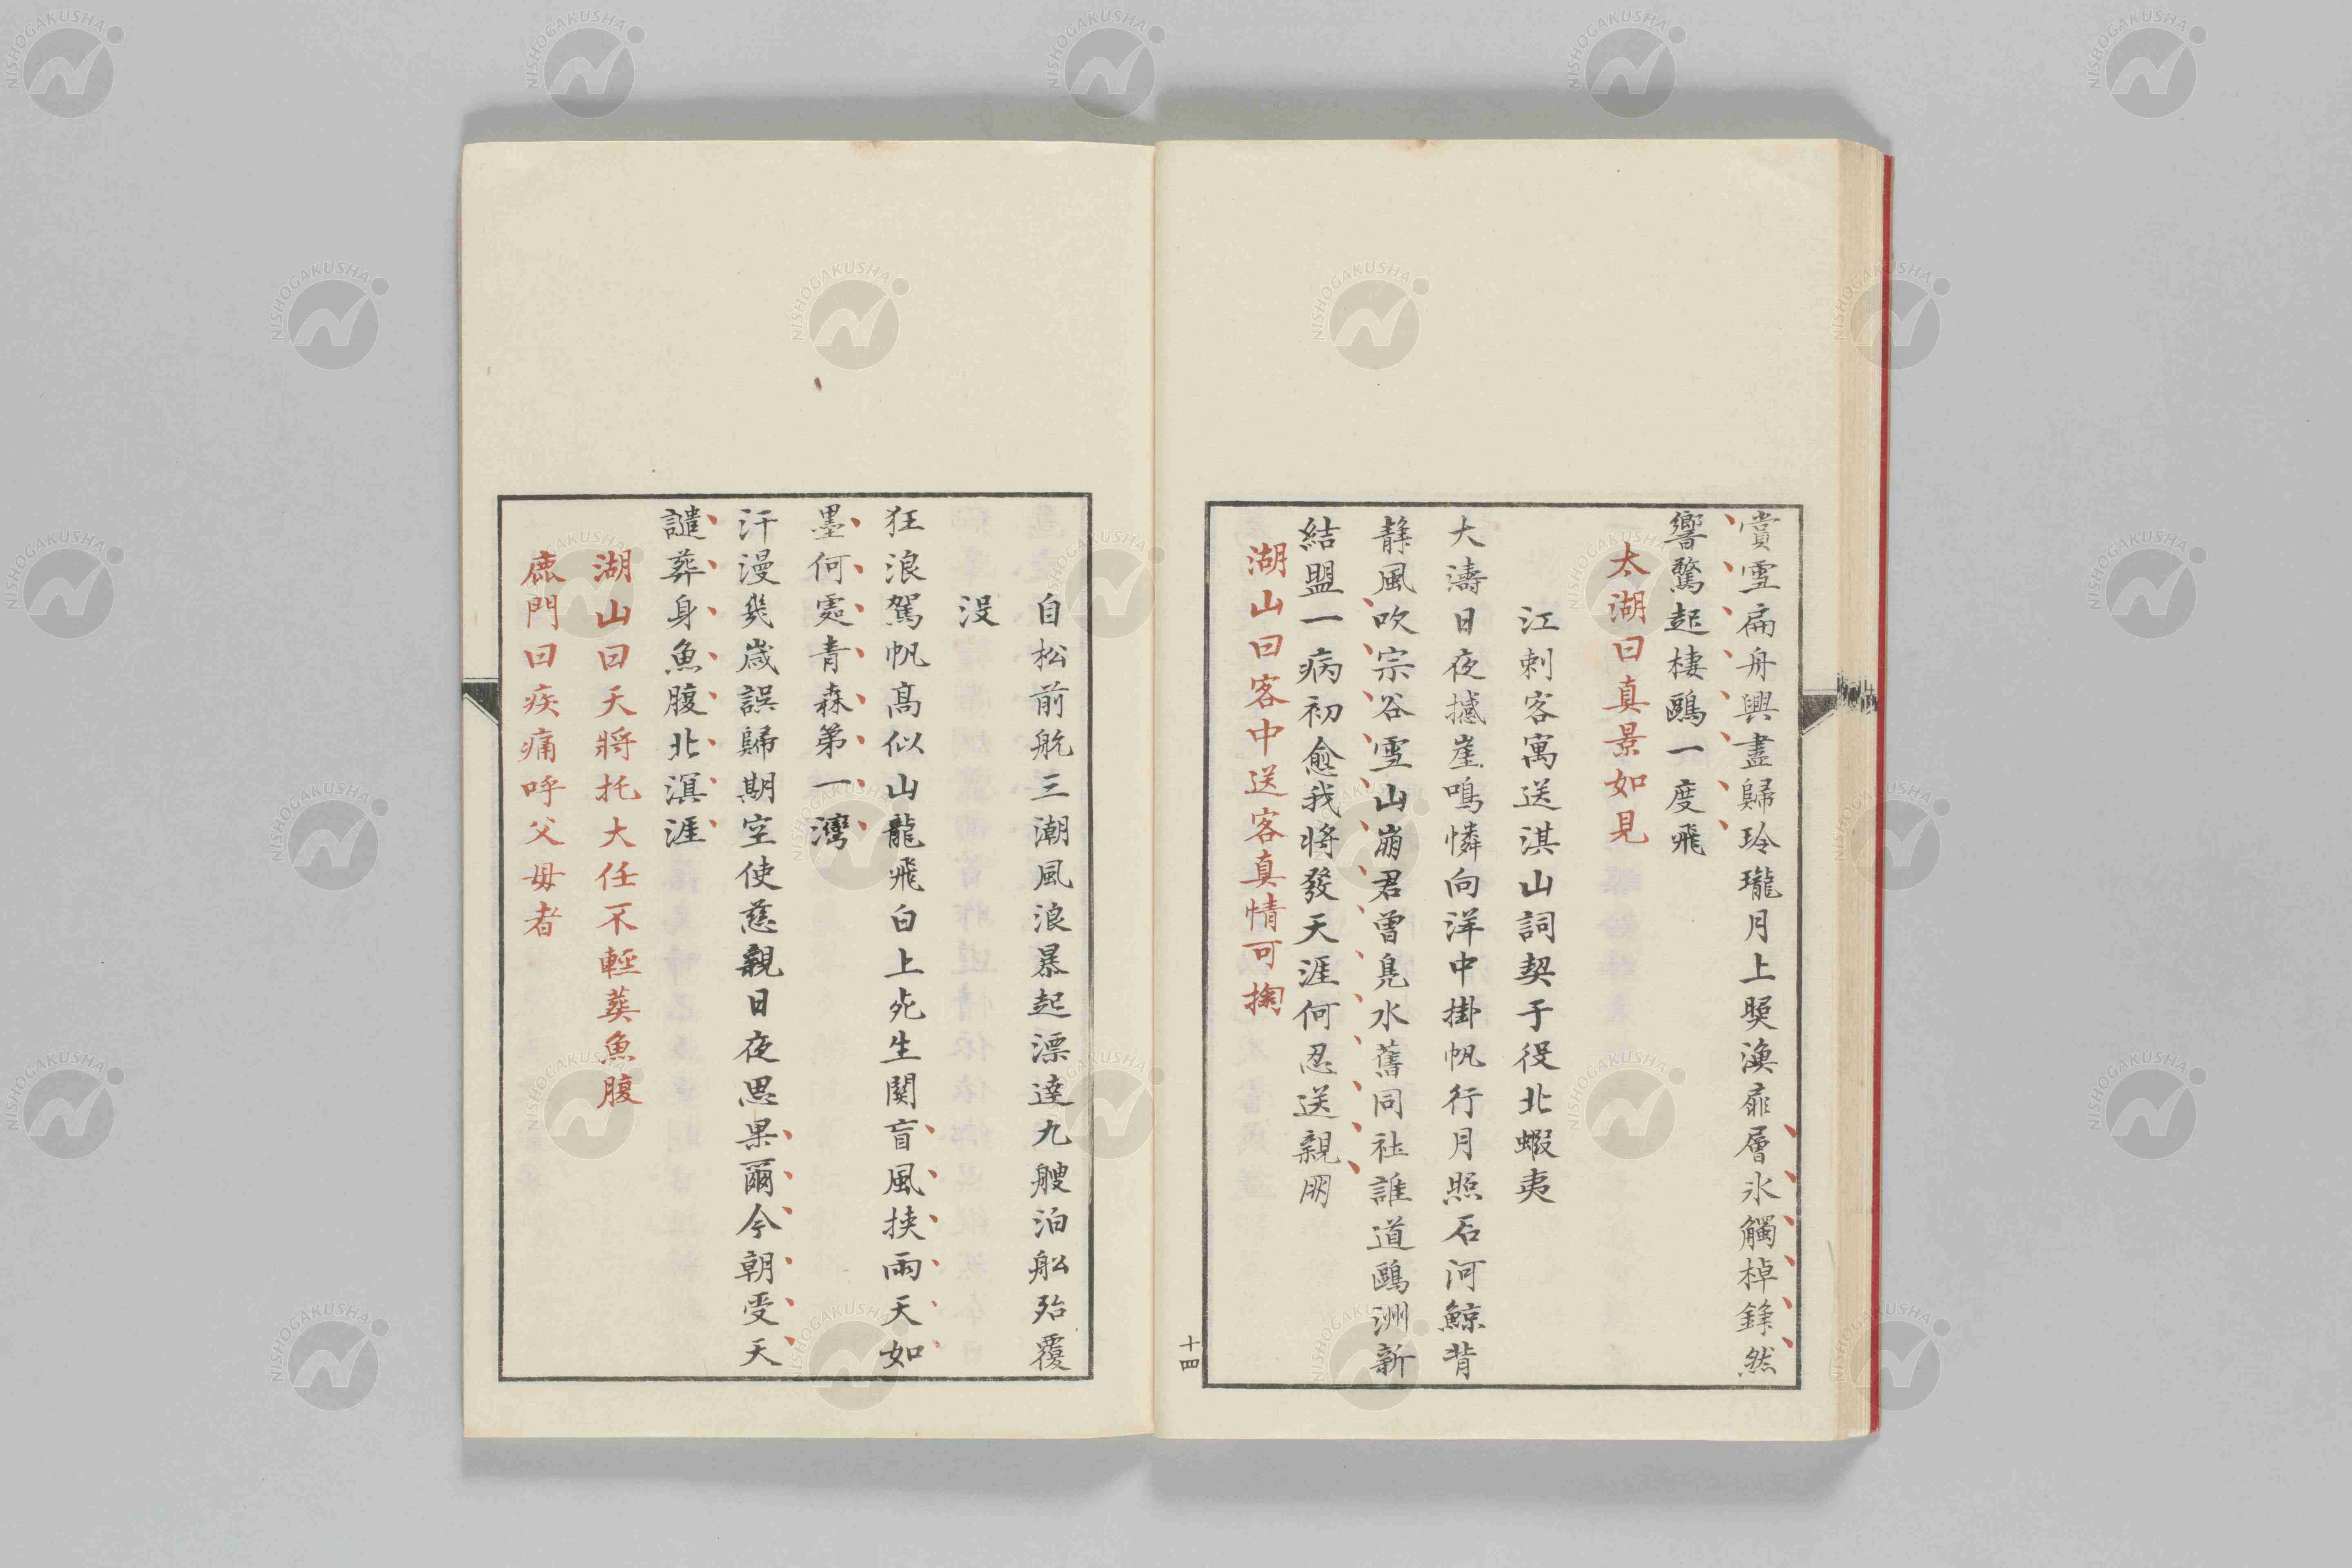 賞雪扁舟興盡歸玲瓏月上照漁扉層氷觸棹鋒然
響驚起棲鷗一度飛
太湖曰真景如見
江刺客寓送淇山詞契于役北蝦夷
大濤日夜撼崖鳴憐向洋中掛帆行月照石河鯨背
静風吹宗谷雪山崩君曽鳧水舊同社誰道鷗洲新
結盟一病初愈我将發天涯何忍送親朋
湖山曰客中送客真情可掬
十四
自松前航三潮風浪暴起漂達九艘泊舩殆覆
没
狂浪駕帆髙似山龍飛白上死生関盲風挟雨天如
墨何處青森第一灣
汗漫幾歳誤歸期空使慈親日夜思果爾今朝受天
譴葬身魚腹北溟涯
湖山曰天将托大任不輕葬魚腹
鹿門曰疾痛呼父母者
NISHOGAKUSHA